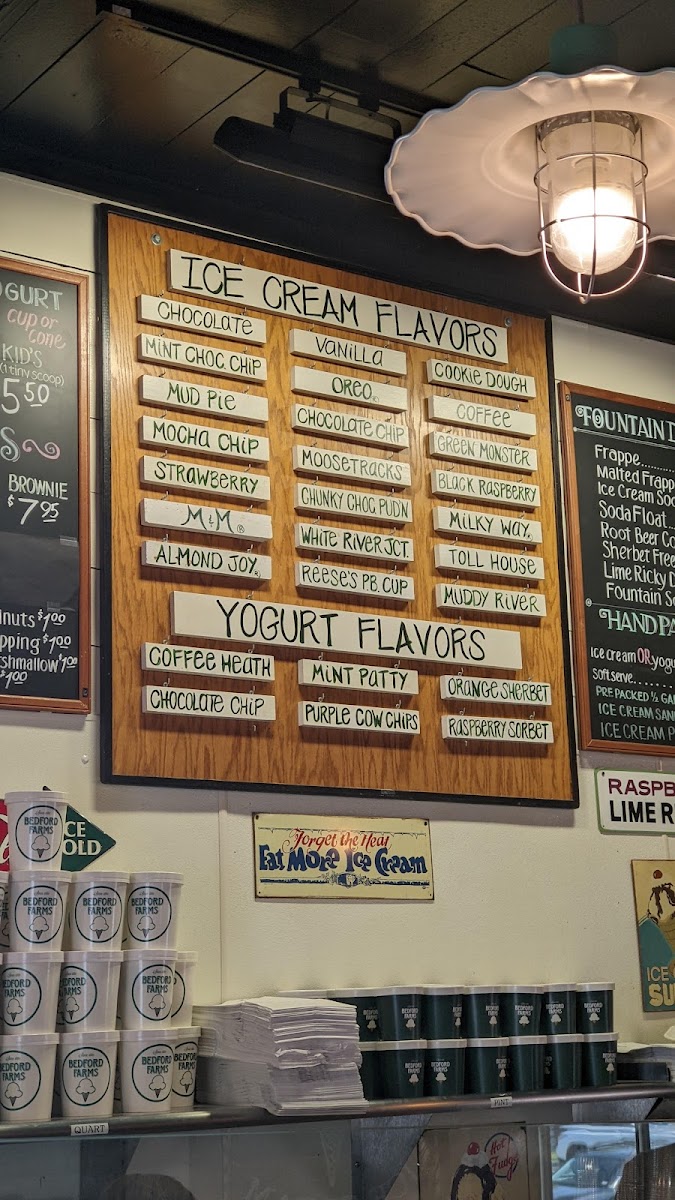 OGURT
cup or
cone
KID'S
(1 tiny scoop)
5.50
BROWNIE
$7.95
nuts $1.00
pping $1.00
rshmallow $1.00
$1.00
ICE CREAM FLAVORS
CHOCOLATE
MINT CHOC. CHIP
MUD PIE
MOCHA CHIP
STRAWBERRY
M&M®
ALMOND JOY®
VANILLA
OREO®
CHOCOLATE CHIP
MOOSETRACKS
CHUNKY CHOC. PUD'N
WHITE RIVER JCT.
REESE'S P.B. CUP
COOKIE DOUGH
COFFEE
GREEN MONSTER
BLACK RASPBERRY
MILKY WAY®
TOLL HOUSE
MUDDY RIVER
YOGURT FLAVORS
COFFEE HEATH
CHOCOLATE CHIP
MINT PATTY
PURPLE COW CHIPS
ORANGE SHERBET
RASPBERRY SORBET
FOUNTAIN D
Frappe..........
Malted Frapp
Ice Cream Soc
Soda Float....
Root Beer Co
Sherbet Free
Lime Ricky D
Fountain So
HAND PA
ice cream OR yogu
soft serve........
PRE PACKED ½ GAL
ICE CREAM SAN
ICE CREAM P
RASPB
LIME R
Forget the Heat
Eat More Ice Cream
ICE
SU
ICE
OLD
BEDFORD FARMS
BEDFORD FARMS
BEDFORD FARMS
BEDFORD FARMS
BEDFORD FARMS
BEDFORD FARMS
BEDFORD FARMS
BEDFORD FARMS
BEDFORD FARMS
BEDFORD FARMS
QUART
PINT
Hot
Fudge